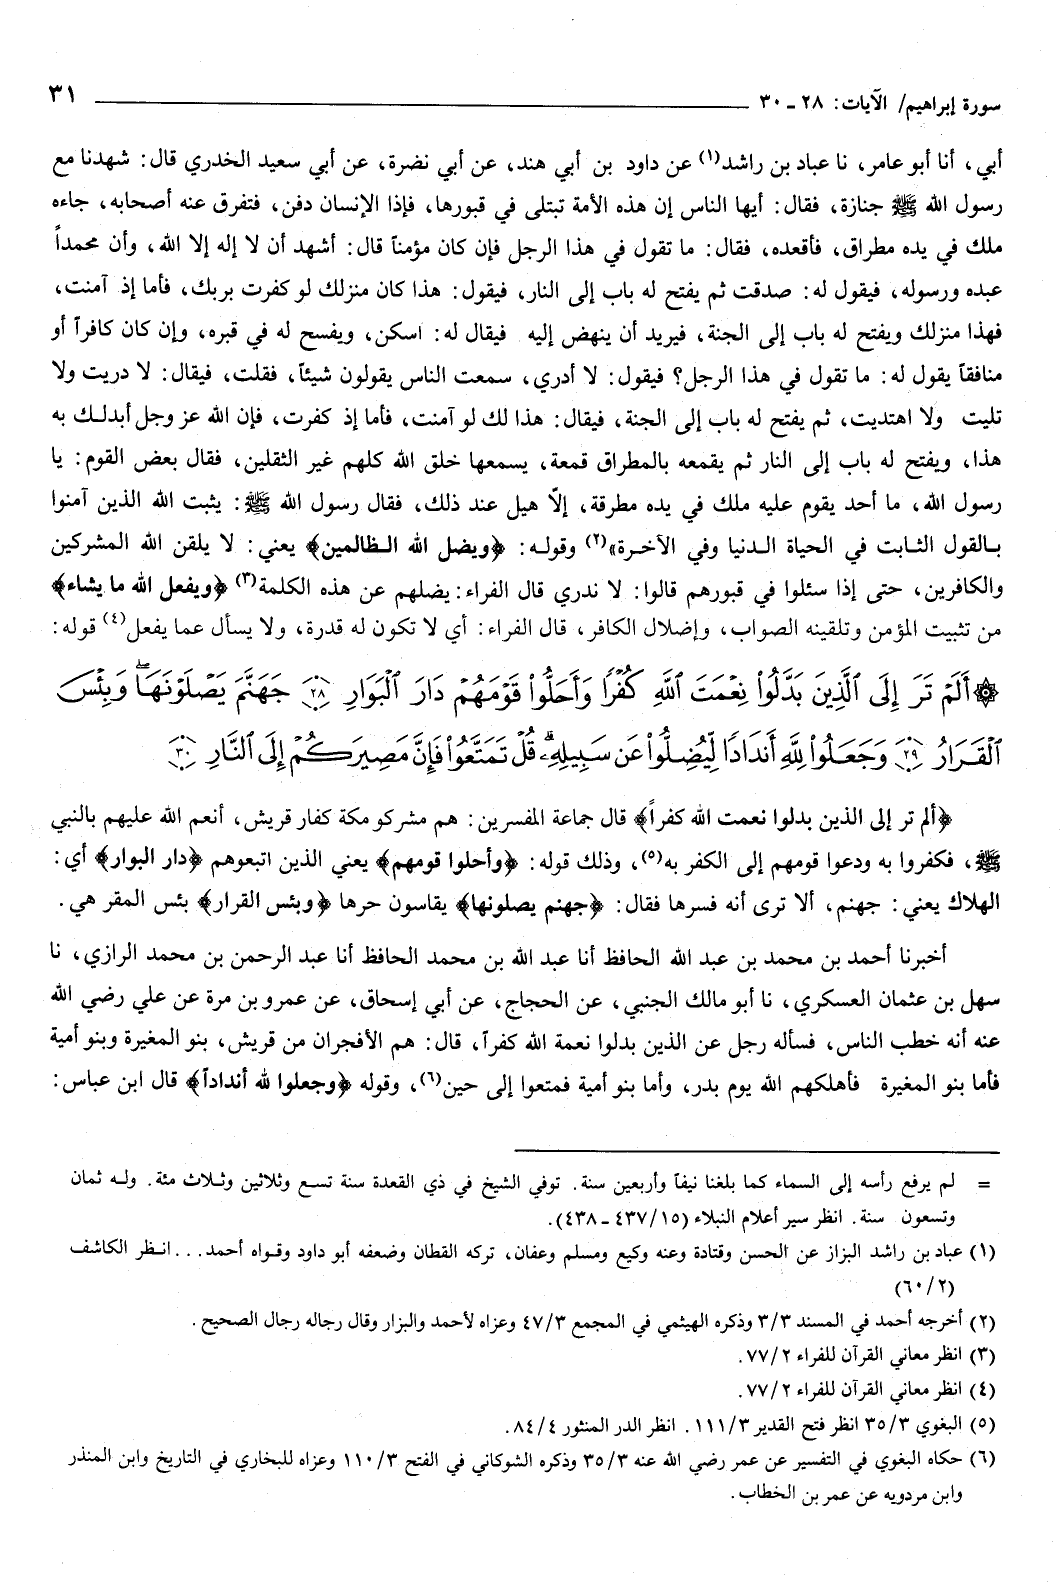 سورة إبراهيم/ الآيات: ٢٨ ـ ٣٠ ٣١
أبي، أنا أبو عامر، نا عباد بن راشد(١) عن داود بن أبي هند، عن أبي نضرة، عن أبي سعيد الخدري قال: شهدنا مع
رسول الله ﷺ جنازة، فقال: أيها الناس إن هذه الأمة تبتلى في قبورها، فإذا الإنسان دفن، فتفرق عنه أصحابه، جاءه
ملك في يده مطراق، فأقعده، فقال: ما تقول في هذا الرجل فإن كان مؤمناً قال: أشهد أن لا إله إلا الله، وأن محمداً
عبده ورسوله، فيقول له: صدقت ثم يفتح له باب إلى النار، فيقول: هذا كان منزلك لو كفرت بربك، فأما إذ آمنت،
فهذا منزلك ويفتح له باب إلى الجنة، فيريد أن ينهض إليه فيقال له: اسكن، ويفسح له في قبره، وإن كان كافراً أو
منافقاً يقول له: ما تقول في هذا الرجل؟ فيقول: لا أدري، سمعت الناس يقولون شيئاً، فقلت، فيقال: لا دريت ولا
تليت ولا اهتديت، ثم يفتح له باب إلى الجنة، فيقال: هذا لك لو آمنت، فأما إذ كفرت، فإن الله عز وجل أبدلك به
هذا، ويفتح له باب إلى النار ثم يقمعه بالمطراق قمعة، يسمعها خلق الله كلهم غير الثقلين، فقال بعض القوم: يا
رسول الله، ما أحد يقوم عليه ملك في يده مطرقة، إلاّ هيل عند ذلك، فقال رسول الله ﷺ: يثبت الله الذين آمنوا
بالقول الثابت في الحياة الدنيا وفي الآخرة»(٢) وقوله: ﴿ويضل الله الظالمين﴾ يعني: لا يلقن الله المشركين
والكافرين، حتى إذا سئلوا في قبورهم قالوا: لا ندري قال الفراء: يضلهم عن هذه الكلمة(٣) ﴿ويفعل الله ما يشاء﴾
من تثبيت المؤمن وتلقينه الصواب، وإضلال الكافر، قال الفراء: أي لا تكون له قدرة، ولا يسأل عما يفعل(٤) قوله:
۞ أَلَمْ تَرَ إِلَى ٱلَّذِينَ بَدَّلُوا۟ نِعْمَتَ ٱللَّهِ كُفْرًا وَأَحَلُّوا۟ قَوْمَهُمْ دَارَ ٱلْبَوَارِ ٢٨ جَهَنَّمَ يَصْلَوْنَهَا ۖ وَبِئْسَ
ٱلْقَرَارُ ٢٩ وَجَعَلُوا۟ لِلَّهِ أَندَادًا لِّيُضِلُّوا۟ عَن سَبِيلِهِۦ ۗ قُلْ تَمَتَّعُوا۟ فَإِنَّ مَصِيرَكُمْ إِلَى ٱلنَّارِ ٣٠
﴿ألم تر إلى الذين بدلوا نعمت الله كفراً﴾ قال جماعة المفسرين: هم مشركو مكة كفار قريش، أنعم الله عليهم بالنبي
ﷺ، فكفروا به ودعوا قومهم إلى الكفر به(٥)، وذلك قوله: ﴿وأحلوا قومهم﴾ يعني الذين اتبعوهم ﴿دار البوار﴾ أي:
الهلاك يعني: جهنم، ألا ترى أنه فسرها فقال: ﴿جهنم يصلونها﴾ يقاسون حرها ﴿وبئس القرار﴾ بئس المقر هي.
أخبرنا أحمد بن محمد بن عبد الله الحافظ أنا عبد الله بن محمد الحافظ أنا عبد الرحمن بن محمد الرازي، نا
سهل بن عثمان العسكري، نا أبو مالك الجنبي، عن الحجاج، عن أبي إسحاق، عن عمرو بن مرة عن علي رضي الله
عنه أنه خطب الناس، فسأله رجل عن الذين بدلوا نعمة الله كفراً، قال: هم الأفجران من قريش، بنو المغيرة وبنو أمية
فأما بنو المغيرة فأهلكهم الله يوم بدر، وأما بنو أمية فمتعوا إلى حين(٦)، وقوله ﴿وجعلوا لله أنداداً﴾ قال ابن عباس:
= لم يرفع رأسه إلى السماء كما بلغنا نيفاً وأربعين سنة. توفي الشيخ في ذي القعدة سنة تسع وثلاثين وثلاث مئة. وله ثمان
وتسعون سنة. انظر سير أعلام النبلاء (١٥/ ٤٣٧ ـ ٤٣٨).
(١) عباد بن راشد البزاز عن الحسن وقتادة وعنه وكيع ومسلم وعفان، تركه القطان وضعفه أبو داود وقواه أحمد... انظر الكاشف
(٢/ ٦٠)
(٢) أخرجه أحمد في المسند ٣/٣ وذكره الهيثمي في المجمع ٣/ ٤٧ وعزاه لأحمد والبزار وقال رجاله رجال الصحيح.
(٣) انظر معاني القرآن للفراء ٢/ ٧٧.
(٤) انظر معاني القرآن للفراء ٢/ ٧٧.
(٥) البغوي ٣/ ٣٥ انظر فتح القدير ٣/ ١١١. انظر الدر المنثور ٤/ ٨٤.
(٦) حكاه البغوي في التفسير عن عمر رضي الله عنه ٣/ ٣٥ وذكره الشوكاني في الفتح ٣/ ١١٠ وعزاه للبخاري في التاريخ وابن المنذر
وابن مردويه عن عمر بن الخطاب.